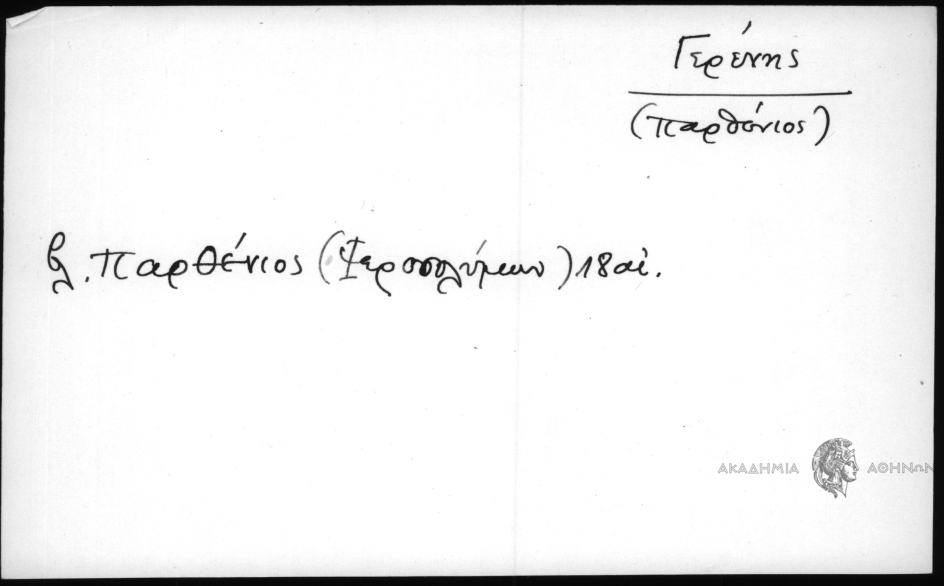 Γερένης
(Παρθένιος)
βλ. Παρθένιος (Ἱεροσολύμων) 18 αἰ.
ΑΚΑΔΗΜΙΑ ΑΘΗΝΩΝ